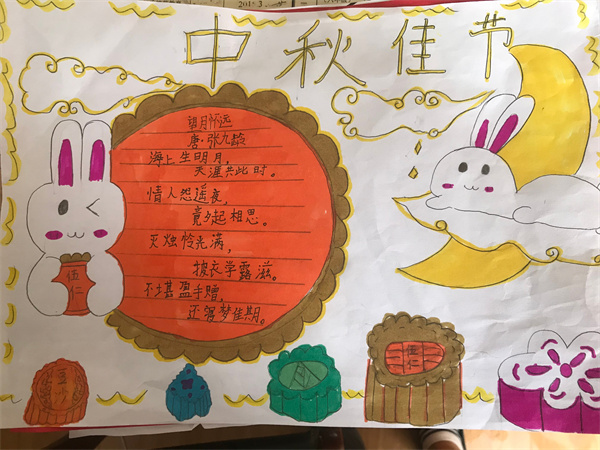 中秋佳节
望月怀远
唐·张九龄
海上生明月,
天涯共此时。
情人怨遥夜,
竟夕起相思。
灭烛怜光满,
披衣学露滋。
不堪盈手赠,
还寝梦佳期。
伍
仁
伍
仁
豆沙